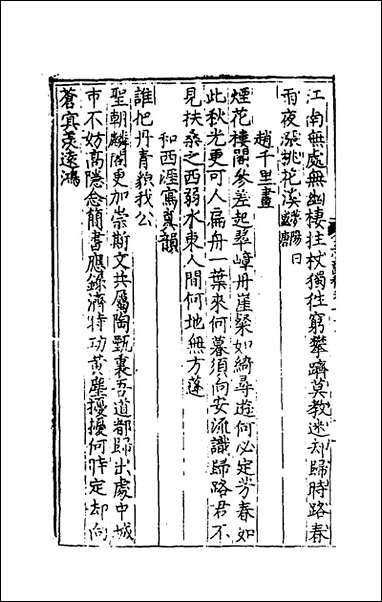 江南無處無幽棲拄杖獨往窮攀躋莫教迷却歸時路春
雨夜漲桃花溪
趙千里畫
煙花樓閣參差起翠嶂丹崖粲如綺尋遊何必定芳春如
此秋光更可人扁舟一葉來何暮須向安流識歸路君不
見扶桑之西弱水東人間何地無方蓬
和西涯寫真韻
誰把丹青貌我公
聖朝麟閣更加崇斯文共屬陶甄裏吾道都歸出處中城
市不妨高隱念簡書應錄濟時功黃塵擾擾何時定却向
蒼冥羨遠鴻